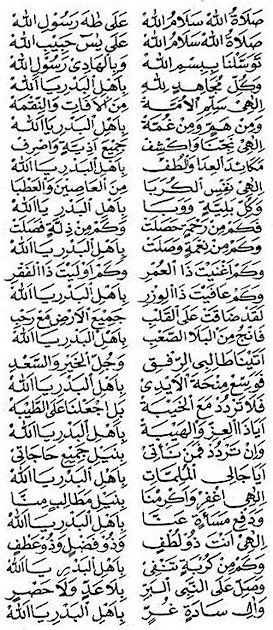 صلاة الله سلام الله على طه رسول الله
صلاة الله سلام الله على يس حبيب الله
توسلنا ببسم الله وبالهادي رسول الله
وكل مجاهد لله بأهل البدر يا الله
الهي سلم الأمة من الآفات والنقمة
ومن هم ومن غمة بأهل البدر يا الله
الهي نجنا واكشف جميع اذية واصرف
مكائد العدا والطف بأهل البدر يا الله
الهي نفس الكربا من العاصين والعطبا
وكل بلية ووبا بأهل البدر يا الله
فكم من رحمة حصلت وكم من ذلة فصلت
وكم من نعمة وصلت بأهل البدر يا الله
وكم اغنيت ذا العمر وكم اوليت ذا الفقر
وكم عافيت ذا الوزر بأهل البدر يا الله
لقد ضاقت على القلب جميع الارض مع رحب
فانج من البلا الصعب بأهل البدر يا الله
اتينا طالبي الرفق وجل الخير والسعد
فوسع منحة الايدي بأهل البدر يا الله
فلا تردد مع الخيبة بل اجعلنا على الطيبة
ايا ذا العز والهيبة بأهل البدر يا الله
وان تردد فمن نأتي بنيل جميع حاجاتي
ايا جالي الملمات بأهل البدر يا الله
الهي اغفر واكرمنا بنيل مطالب منا
ودفع مساءة عنا بأهل البدر يا الله
الهي انت ذو لطف وذو فضل وذو عطف
وكم من كربة تنفي بأهل البدر يا الله
وصل على النبي البر بلا عد ولا حصر
وآل سادة غر بأهل البدر يا الله